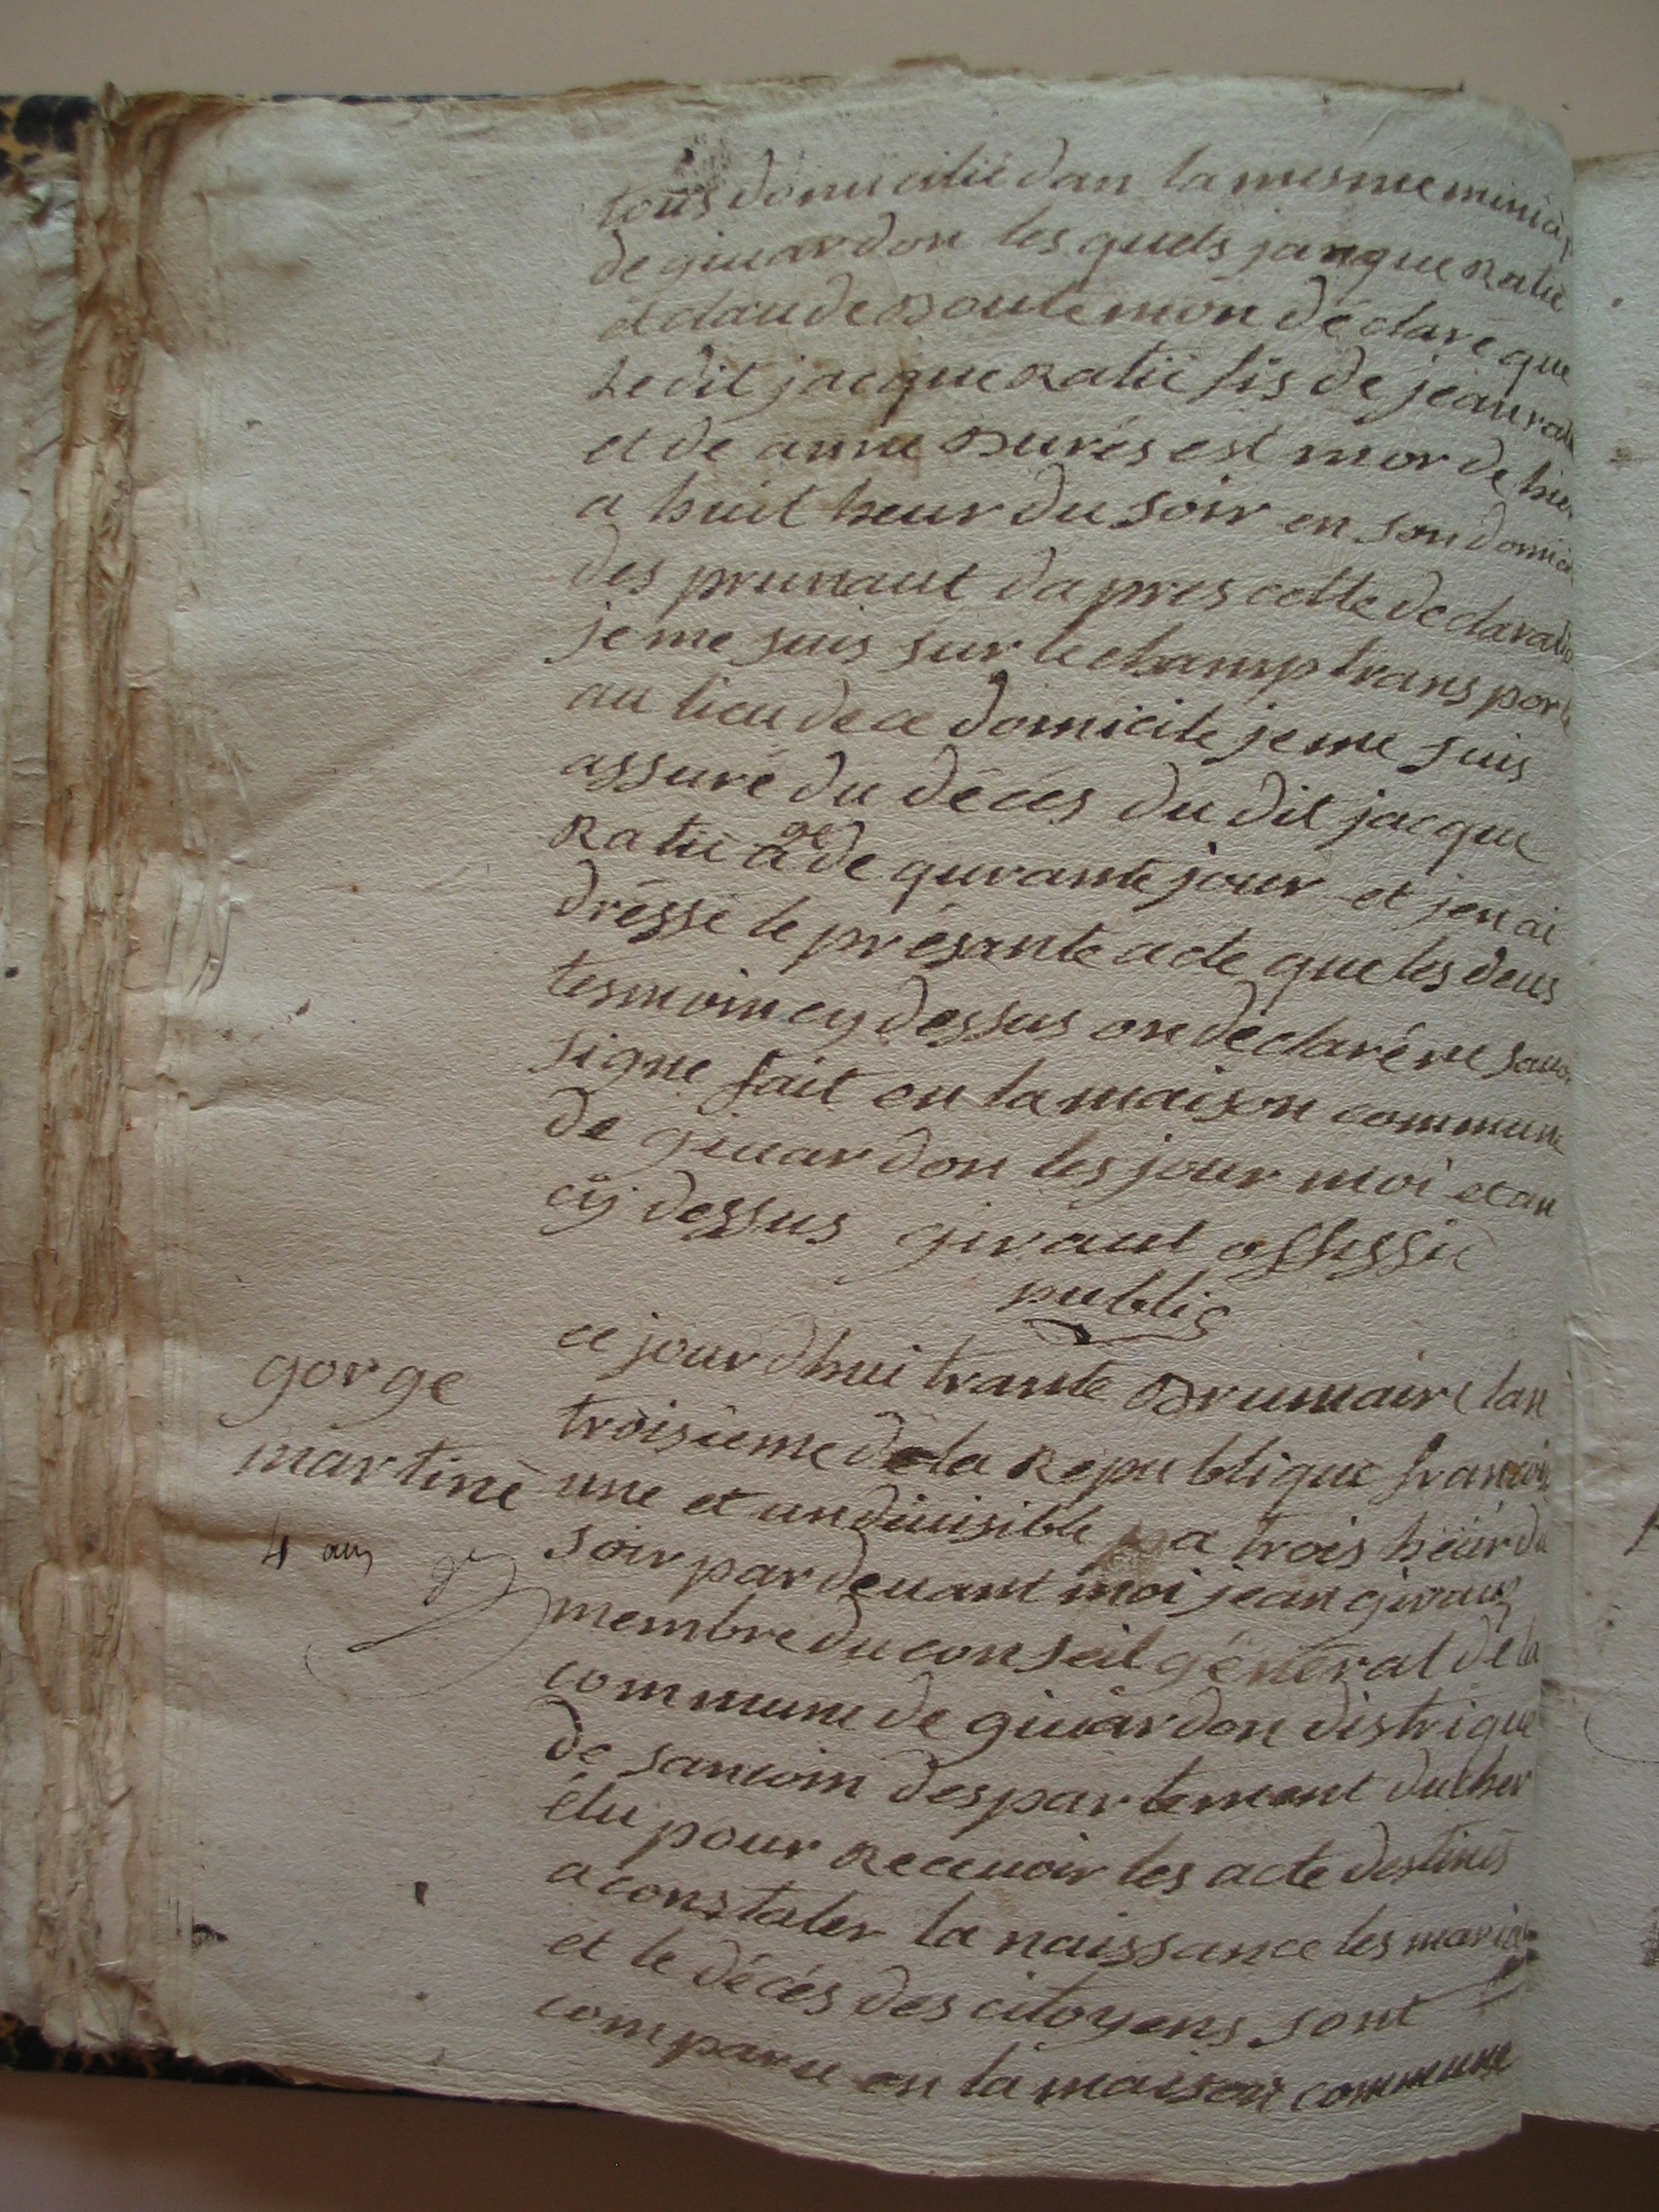 tous domicilié dan la mesme
de givardon les quels jacque Ratié
et claude Boutemon déclaré que
Ledit jacque Ratié fis de jean
et de anne Burés est mor de hier
a huit heur du soir en son
des prunaut da pres cette
je me suis sur le champ trans porté
au lieu de ce domicile je me suis
assuré du décés du dit jacque
Ratié agé de qurante jour et jen ai
dréssé le présante acte que les deus
tesmoin cy dessus on declaré ne savoir
signe fait en la maison commune
de givardon les jour moi et an
cy dessus giraut offissié
public
ce jour dhui trante Brumaire lan
troisieme de la Republique
gorge
martiné
4 ans
une et undivisible a trois heur du
soir par devant moi jean giraut
membre du conseil général de la
commune de givardon distrique
de sancoin despartement ducher
élu pour Recevoir les acte destinés
a constater la naissance les
et le décés des citoyens sont
comparu en la maison commune